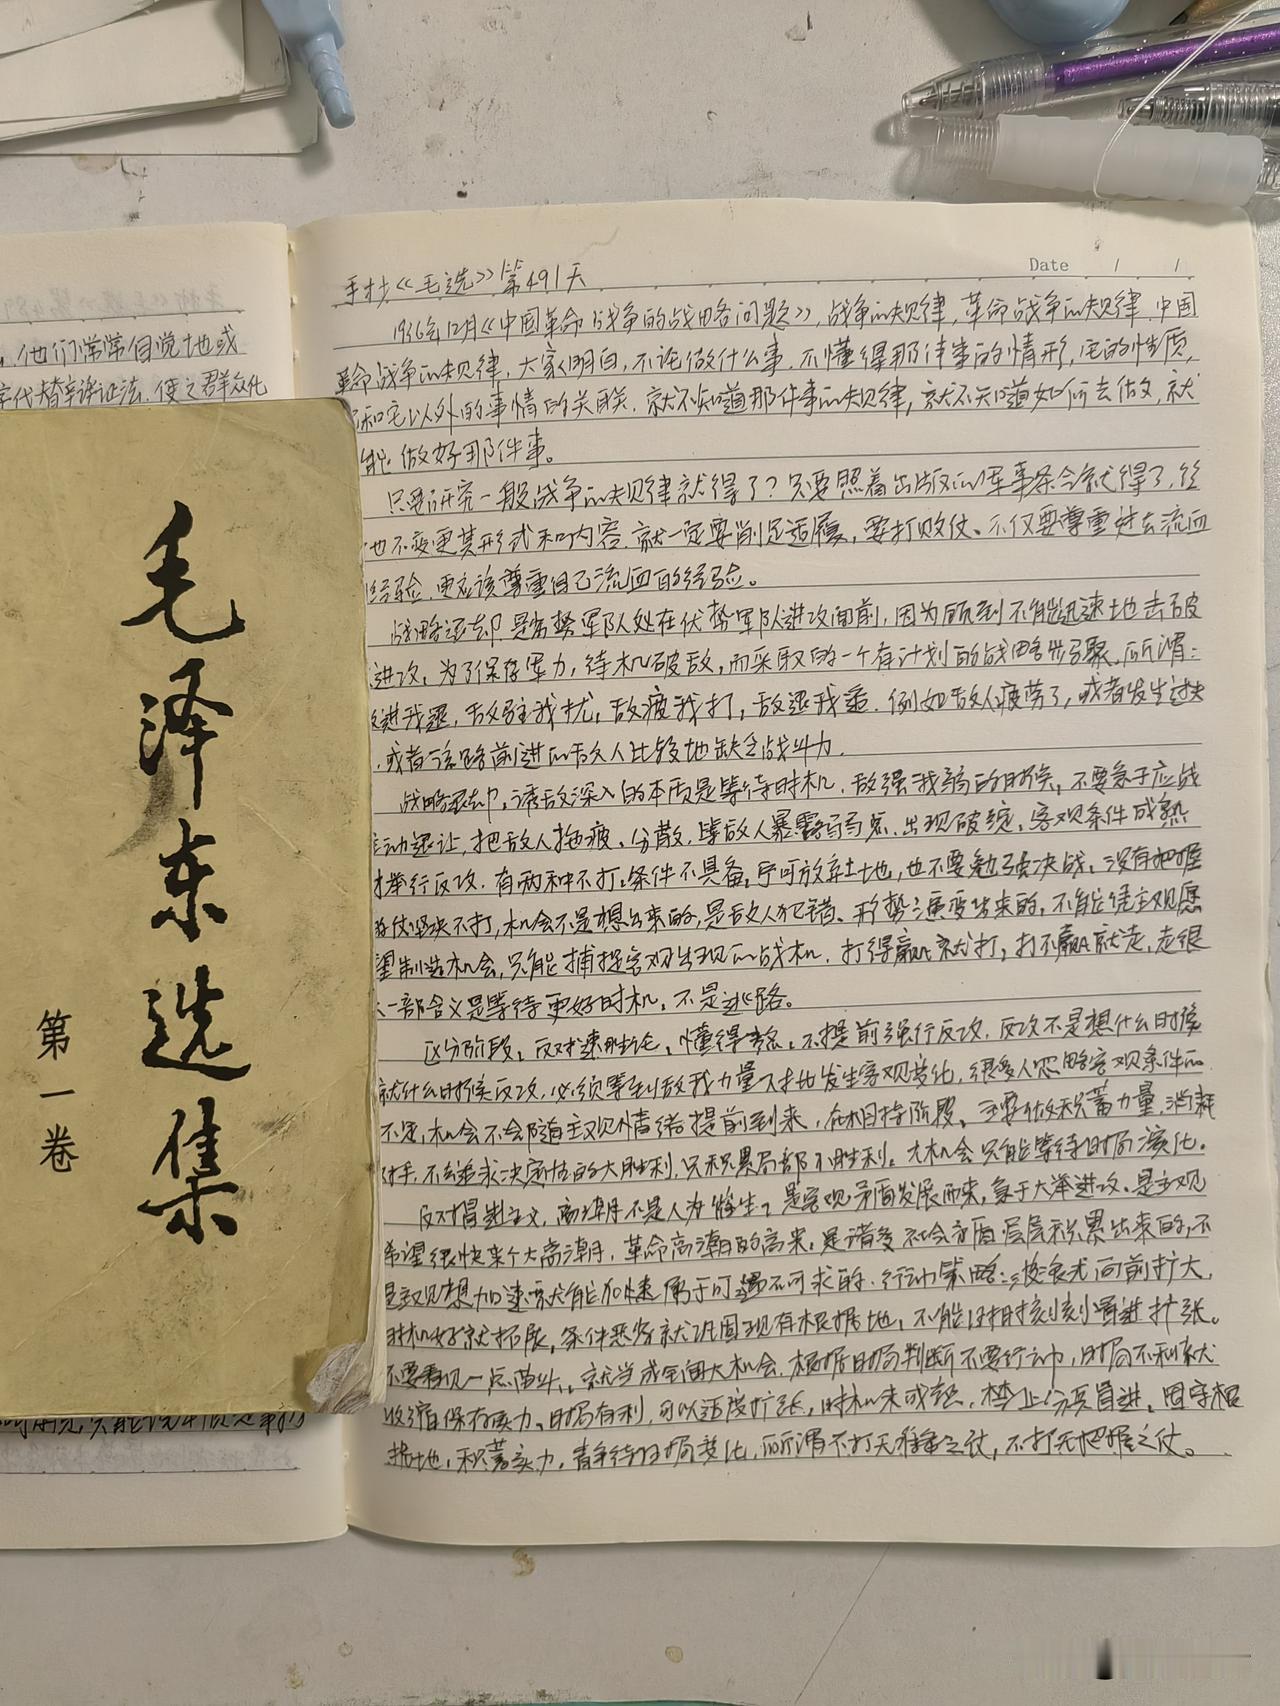 他们常常自觉地或
代替辩证法,使之群众化
毛泽东选集
第一卷
Date / /
手抄《毛选》第491天
1936年12月《中国革命战争的战略问题》,战争的规律,革命战争的规律,中国
革命战争的规律,大家明白,不论做什么事,不懂得那件事的情形,它的性质,
和它以外的事情的关联,就不知道那件事的规律,就不知道如何去做,就
能做好那件事。
只要研究一般战争的规律就得了?只要照着出版的军事条令就得了,丝
也不变更其形式和内容,就一定要削足适履,要打败仗、不仅要尊重过去流血
经验,更应该尊重自己流血的经验。
战略退却是劣势军队处在优势军队进攻面前,因为顾到不能迅速地击破
进攻,为了保存军力,待机破敌,而采取的一个有计划的战略步骤,所谓:
进我退,敌驻我扰,敌疲我打,敌退我追.例如敌人疲劳了,或者发生过失
,或者该路前进的敌人比较地缺乏战斗力.
战略退却,诱敌深入的本质是等待时机.敌强我弱的时候,不要急于应战
主动退让,把敌人拖疲、分散,等敌人暴露弱点、出现破绽、客观条件成熟
才举行反攻.有两种不打:条件不具备,宁可放弃土地,也不要勉强决战、没有把握
仗坚决不打,机会不是想出来的,是敌人犯错、形势演变出来的,不能凭主观愿
望制造机会,只能捕捉客观出现的战机.打得赢就打,打不赢就走,走很
大一部含义是等待更好时机,不是逃跑。
区分阶段,反对速胜论,懂得忍,不提前强行反攻.反攻不是想什么时候
就什么时候反攻,必须等到敌我力量对比发生客观变化,很多人忽略客观条件的
不足,机会不会随主观情绪提前到来,在相持阶段、主要做积蓄力量,消耗
对手,不去追求决定性的大胜利,只积累局部小胜利。大机会只能等待时局演化。
反对冒进主义,高潮不是人为催生,是客观矛盾发展而来,急于大举进攻、是主观
希望很快来个大高潮,革命高潮的高来,是诸多社会矛盾层层积累出来的,不
是主观想加速就能加快,属于可遇不可求的.行动策略:波浪式向前扩大,
时机好就拓展,条件恶劣就巩固现有根据地,不能时时刻刻冒进扩张。
不要看见一点苗头,就当成全面大机会.根据时局判断不要行动,时局不利就
收缩保存实力、时局有利,可以适度扩张,时机未成熟,禁止分兵冒进、固守根
据地,积蓄实力,等待时局变化,所谓不打无准备之仗,不打无把握之仗。